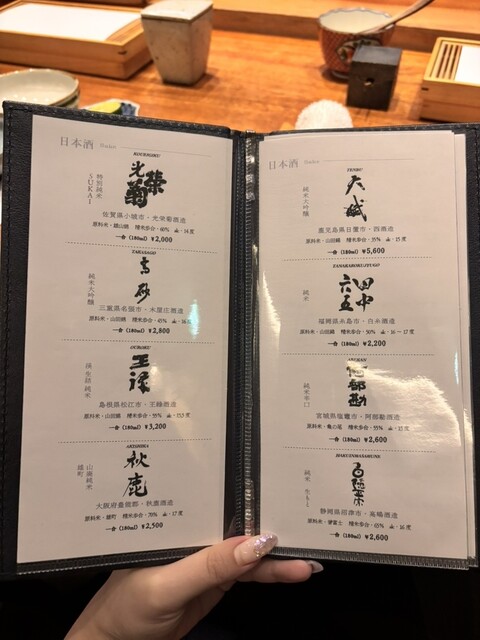 日本酒 Sake
KOUEIGIKU
光栄菊
特別純米
SUKAI
佐賀県小城市・光栄菊酒造
原料米・雄山錦 精米歩合・60% 度・14度
一合 (180ml) ¥2,000
TAKASAGO
高砂
純米大吟醸
三重県名張市・木屋正酒造
原料米・山田錦 精米歩合・45% 度・16度
一合 (180ml) ¥2,800
OUROKU
王祿
島根県松江市・王祿酒造
原料米・山田錦 精米歩合・55%
一合 (180ml) ¥3,200
AKISHIKA
秋鹿
山廃純米
雄町
大阪府豊能郡・秋鹿酒造
原料米・雄町 精米歩合・70% 度・17度
一合 (180ml) ¥2,500
日本酒 Sake
TENBU
天賦
純米大吟醸
鹿児島県日置市・西酒造
原料米・山田錦 精米歩合・35% 度・15度
一合 (180ml) ¥5,600
TANAKAROKUJYUGO
田中六五
純米
福岡県糸島市・白糸酒造
原料米・山田錦 精米歩合・50% 度・16~17度
一合 (180ml) ¥2,200
ABEKAN
阿部勘
純米辛口
宮城県塩竈市・阿部勘酒造
原料米・亀の尾 精米歩合・55% 度・15度
一合 (180ml) ¥2,600
HAKUINMASAMUNE
白隠正宗
純米 生もと
静岡県沼津市・高嶋酒造
原料米・誉富士 精米歩合・65% 度・16度
一合 (180ml) ¥2,600